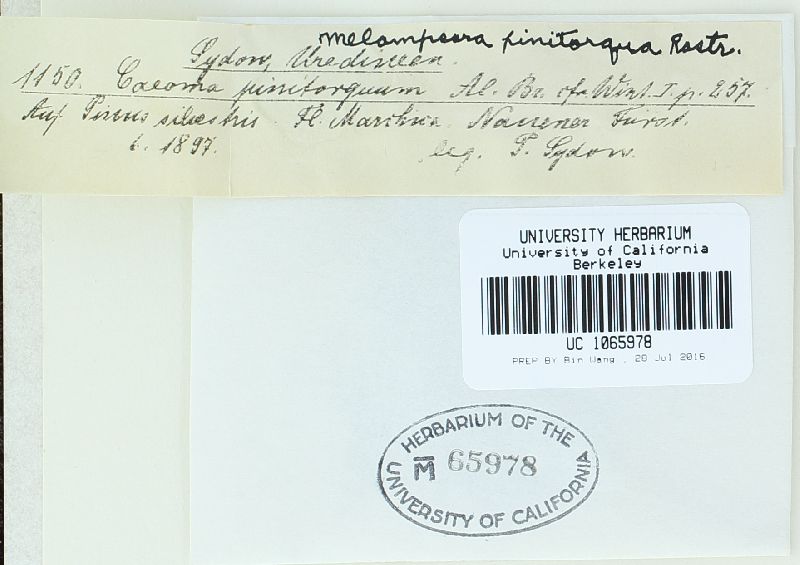 Melampsora pinitorqua Rostr.
Sydow, Uredineen.
1150. Caeoma pinitorquum Al. Br. cfr. Wint. I. p. 257.
Auf Pinus silvestris. Fl. Marchica. Nauener Forst.
6. 1897. leg. P. Sydow.
UNIVERSITY HERBARIUM
University of California
Berkeley
UC 1065978
PREP BY Bin Wang , 20 Jul 2016
HERBARIUM OF THE
M 65978
UNIVERSITY OF CALIFORNIA